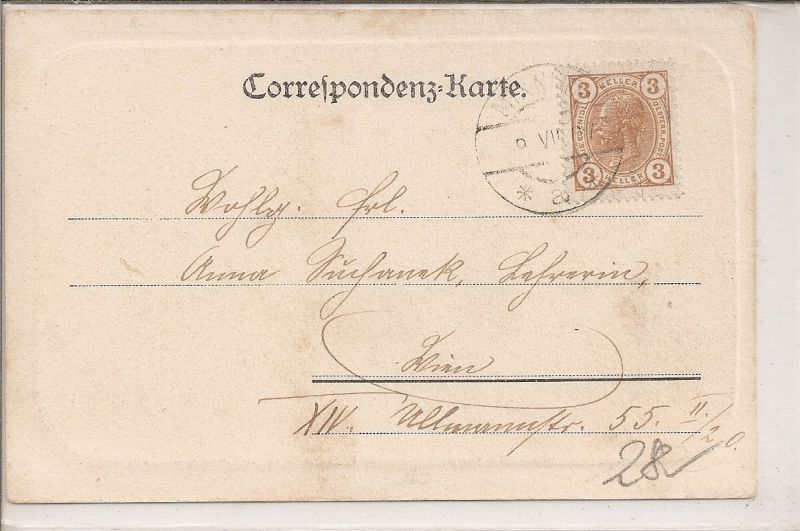 Correspondenz-Karte.
3 HELLER 3
3 HELLER 3
VII
* a
Wohlg. Frl.
Anna Suchanek, Lehrerin,
Wien
XIV. Ullmannstr. 55. II./20.
28